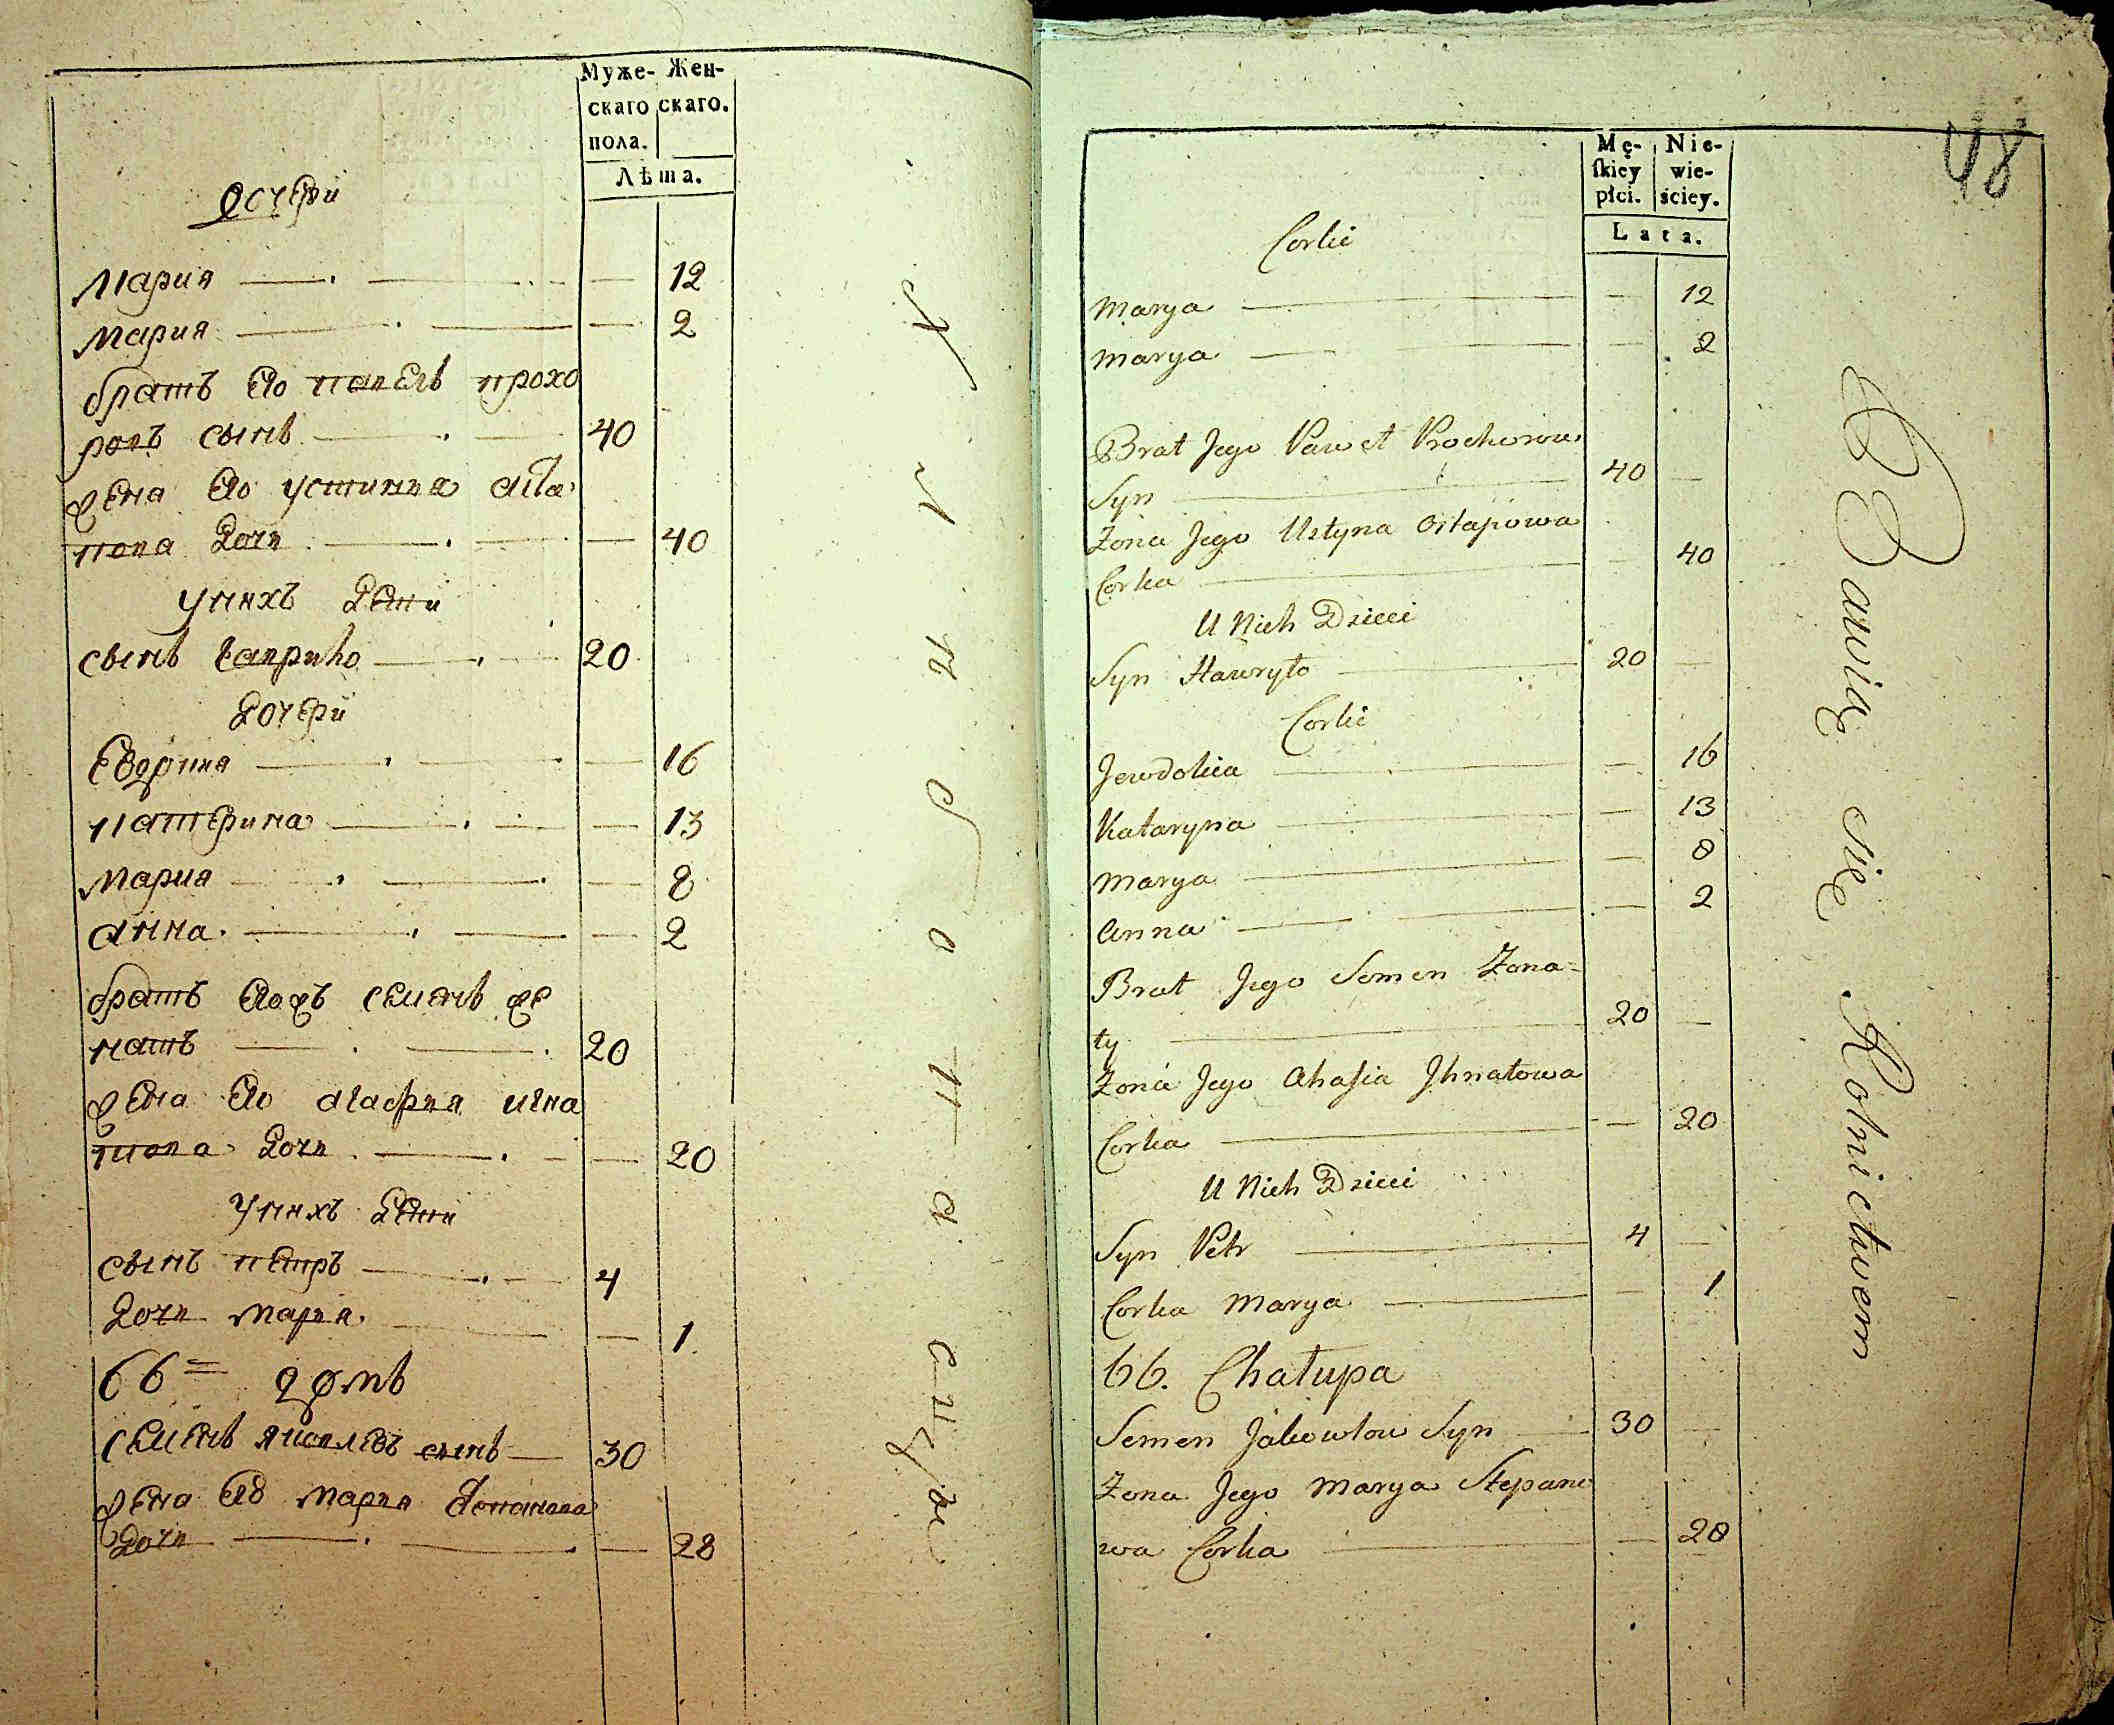 Муже-
скаго
пола.
Жен-
скаго.
Лѣта.
дочери
Мария 12
Мария 2
братъ Его павелъ прохо
ровъ сынъ 40
жена Его устиния аста
пова дочь 40
у нихъ дети
сынъ гаврило 20
дочери
Евдокия 16
катерина 13
Мария 8
анна 2
братъ Егожъ семенъ же
натъ 20
жена Его агафия игна
това дочь 20
у нихъ дети
сынъ петръ 4
дочь мария 1
66 домъ
семенъ яковлевъ сынъ 30
жена Его мария
дочь 28
48
Mę-
skiey
płci.
Nie-
wie-
ściey.
Lata.
Corki
Marya 12
Marya 2
Brat Jego Paweł Prochorow
Syn 40
Żona Jego Ustyna Ostapowa
Corka 40
U Nich Dzieci
Syn Hawryło 20
Corki
Jewdokia 16
Kataryna 13
Marya 8
Anna 2
Brat Jego Semen Żona-
ty 20
Żona Jego Ahafia Jhnatowa
Corka 20
U Nich Dzieci
Syn Petr 4
Corka Marya 1
66. Chałupa
Semen Jakowlow Syn 30
Żona Jego Marya Stepano
wa Corka 28
Bawią się Rolnictwem